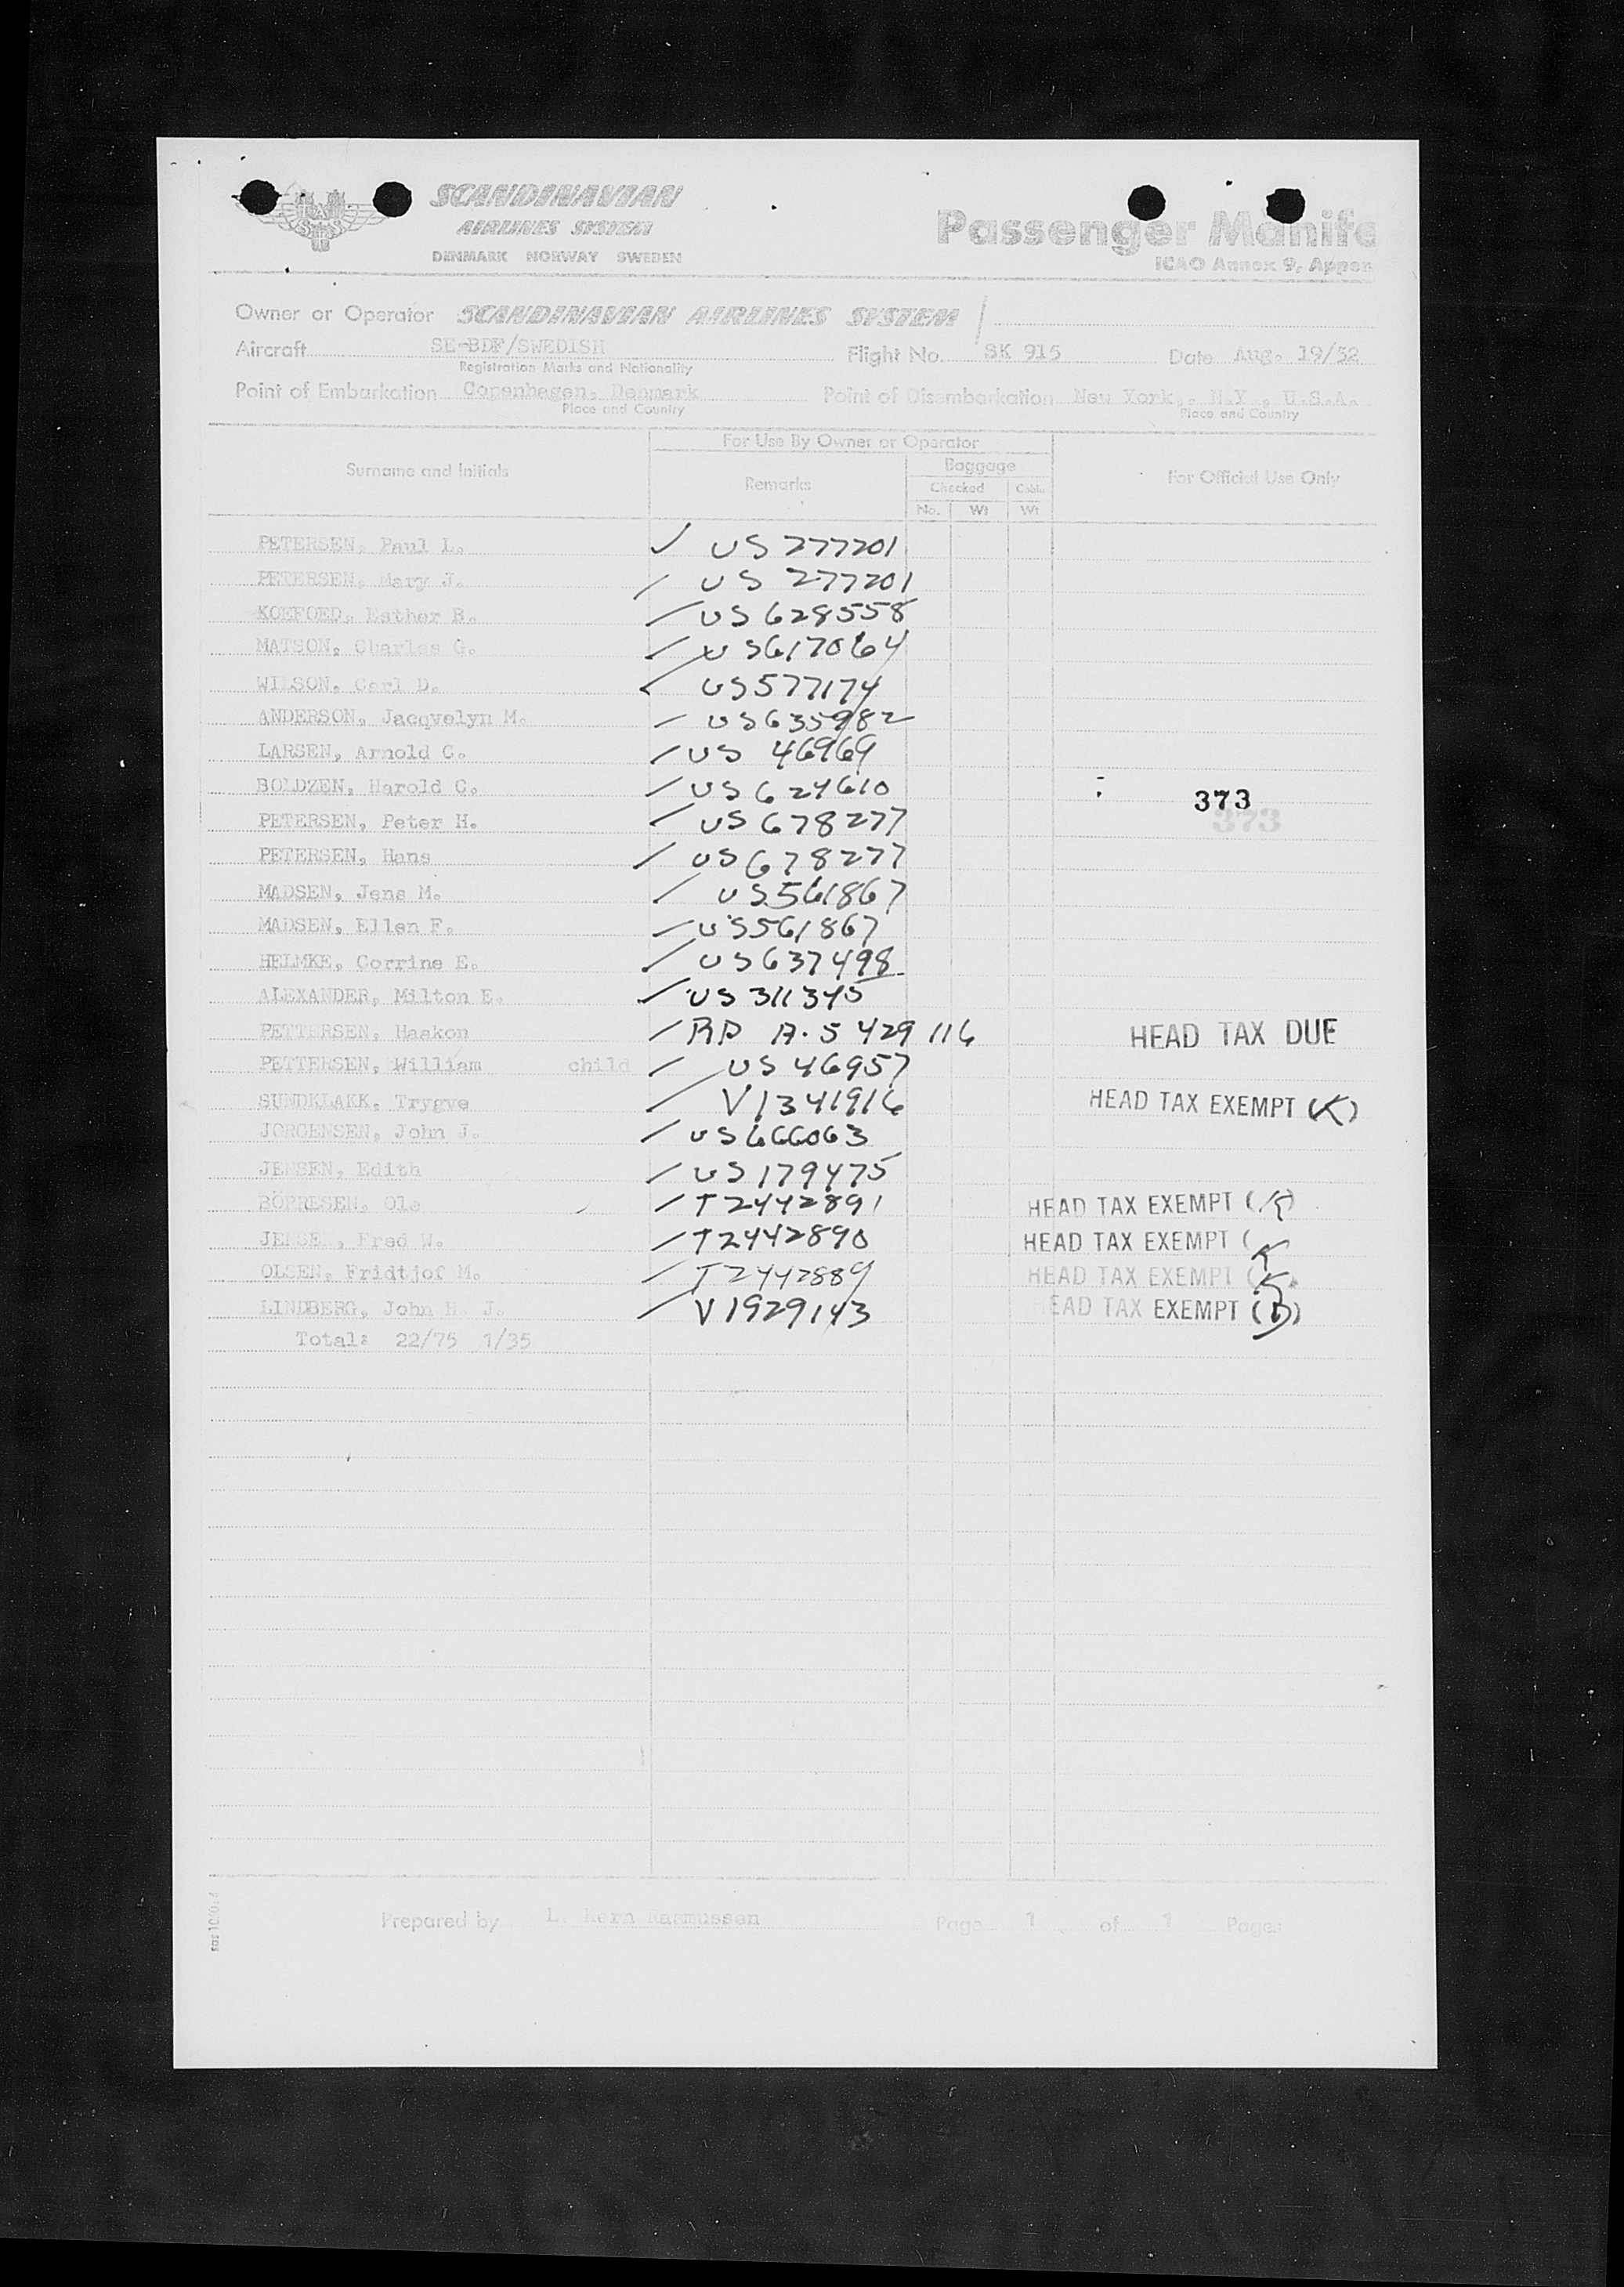 SCANDINAVIAN
AIRLINES SYSTEM
DENMARK NORWAY SWEDEN
Passenger Manife
ICAO Annex 9, Appen
Owner or Operator SCANDINAVIAN AIRLINES SYSTEM
Aircraft SE-BDF/SWEDISH Flight No. SK 915 Date Aug. 19/52
Registration Marks and Nationality
Point of Embarkation Copenhagen, Denmark Point of Disembarkation New York, N.Y., U.S.A.
Place and Country Place and Country
For Use By Owner or Operator
Surname and Initials Remarks Baggage For Official Use Only
Checked Cabin
No. Wt Wt
PETERSEN, Paul L. ✓ US 277201
PETERSEN, Mary J. / US 277201
KOEFOED, Esther B. / US 628558
MATSON, Charles G. / US617064
WILSON, Carl D. ✓ US577174
ANDERSON, Jacqvelyn M. / US635982
LARSEN, Arnold C. / US 46969
BOLDZEN, Harold C. / US 624610 373
PETERSEN, Peter H. / US 678277 373
PETERSEN, Hans / US678277
MADSEN, Jens M. / US561867
MADSEN, Ellen F. / US561867
HELMKE, Corrine E. / US637498
ALEXANDER, Milton E. / US 311345
PETTERSEN, Haakon / RP A-5 429 116 HEAD TAX DUE
PETTERSEN, William child / US 46957
SUNDKLAKK, Trygve / V1341916 HEAD TAX EXEMPT (K)
JORGENSEN, John J. / US666063
JENSEN, Edith / US179475
BÖRRESEN, Ole / T2442891 HEAD TAX EXEMPT (K)
JENSEN, Fred W. / T2442890 HEAD TAX EXEMPT (K
OLSEN, Fridtjof M. / T2442889 HEAD TAX EXEMPT (K)
LINDBERG, John H. J. / V1929143 HEAD TAX EXEMPT (D)
Total: 22/75 1/35
Prepared by L. Rasmussen Page 1 of 1 Pages